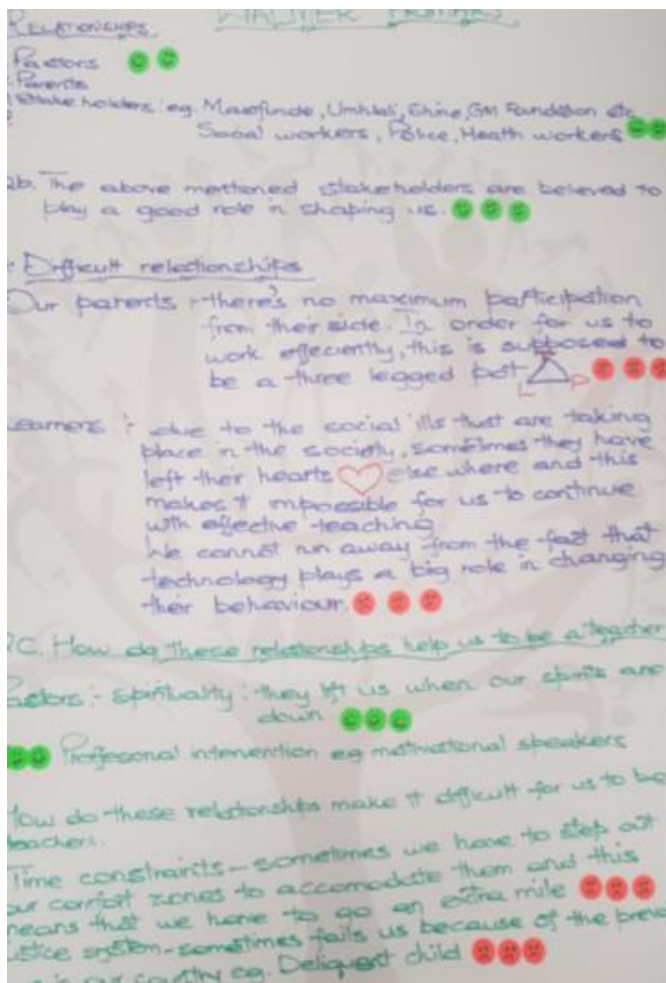 WALMER PRIMARY
RELATIONSHIPS
Pastors
Parents
Stake holders: eg. Masefunde, Umhlali, Shine, GM Foundation etc
Social workers, Police, Heath workers
2b. The above mentioned stakeholders are believed to
play a good role in shaping us.
Difficult relationships
Our parents :- there's no maximum participation
from their side. In order for us to
work effeciently, this is supposed to
be a three legged pot
L P
Learners :- due to the social ills that are taking
place in the society, sometimes they have
left their hearts else where and this
makes it impossible for us to continue
with effective teaching
We cannot run away from the fact that
technology plays a big role in changing
their behaviour.
2C. How do these relationships help us to be a teacher
Pastors :- Spirituality : they lift us when our spirits are
down
Proffesional intervention eg motivational speakers
How do these relationships make it difficult for us to be
teachers.
Time constraints - sometimes we have to step out
our comfort zones to accomodate them and this
means that we have to go an extra mile
justice system - sometimes fails us because of the
in our country eg. Deliquent child